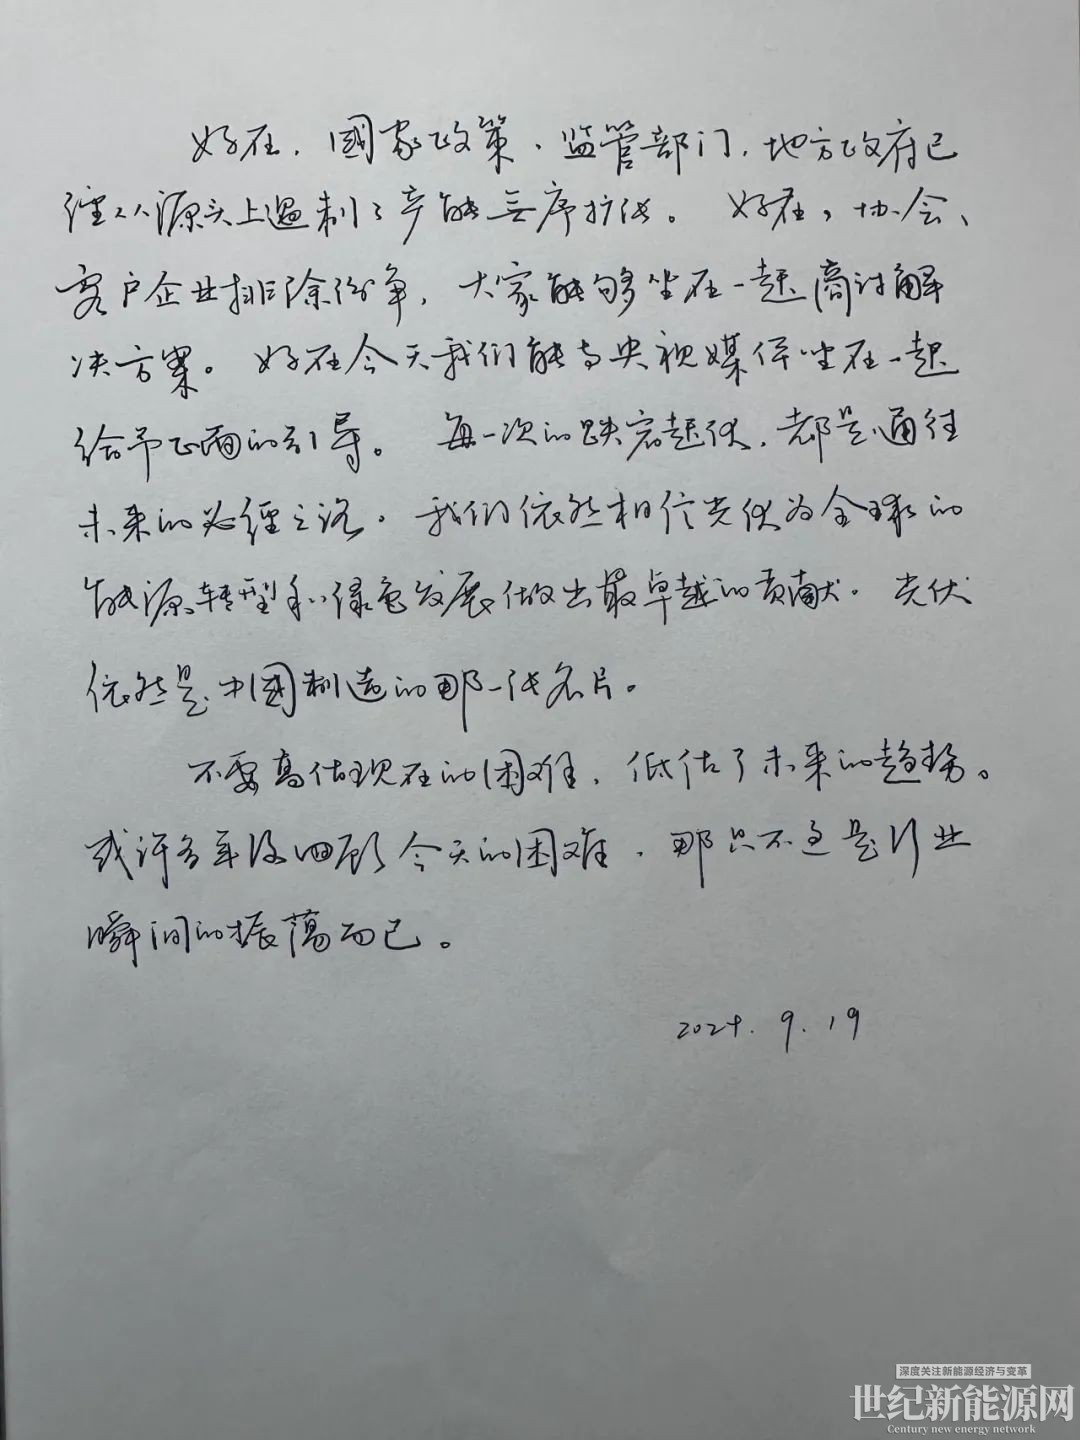 好在，國家政策、监管部门，地方政府已
经从源头上遏制了产能无序扩张。好在，协会、
客户企业排除纷争，大家能够坐在一起商讨解
决方案。好在今天我们能与央视媒体坐在一起
给予正面的引导。每一次的跌宕起伏，都是通往
未来的必经之路。我们依然相信光伏为全球的
能源转型和绿色发展做出最卓越的贡献。光伏
依然是中国制造的那一张名片。
不要高估现在的困难，低估了未来的趋势。
或许多年后回顾今天的困难，那只不过是行业
瞬间的振荡而已。
2024.9.19
深度关注新能源经济与变革
世纪新能源网
Century new energy network